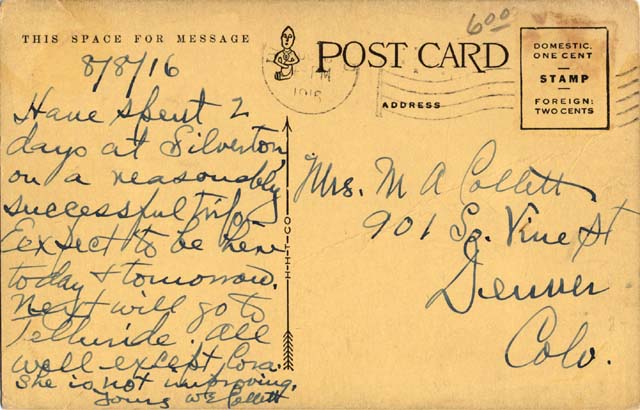 THIS SPACE FOR MESSAGE
8/8/16
Have spent 2
days at Silverton
on a reasonably
successful trip.
Expect to be here
today & tomorrow.
Next will go to
Telluride. All
well except Cora.
She is not improving.
Yours W E Collett
H-H-T-CO
POST CARD
ADDRESS
1916
600
DOMESTIC.
ONE CENT
STAMP
FOREIGN:
TWO CENTS
Mrs. M A Collett
901 So. Vine St
Denver
Colo.